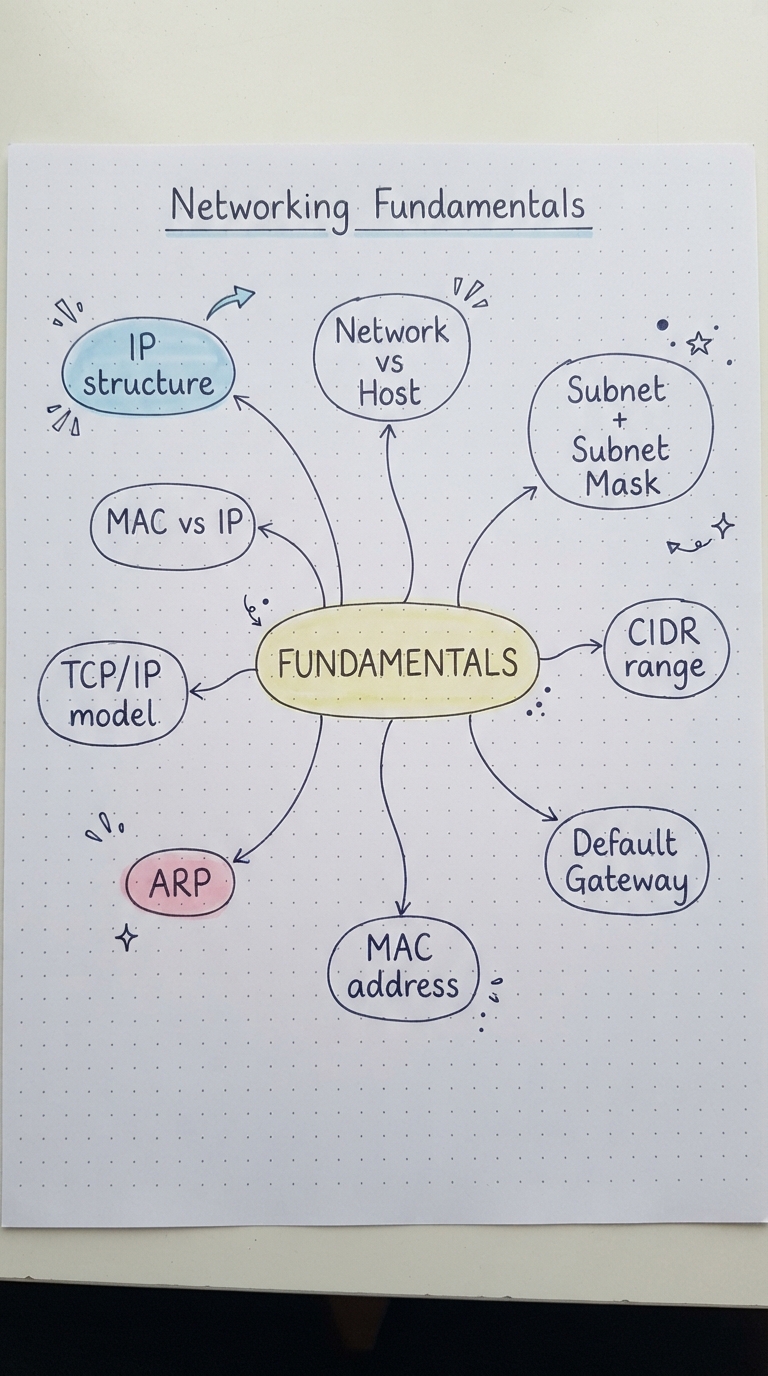 Networking Fundamentals
IP
structure
Network
vs
Host
Subnet
+
Subnet
Mask
MAC vs IP
FUNDAMENTALS
CIDR
range
TCP/IP
model
Default
Gateway
ARP
MAC
address